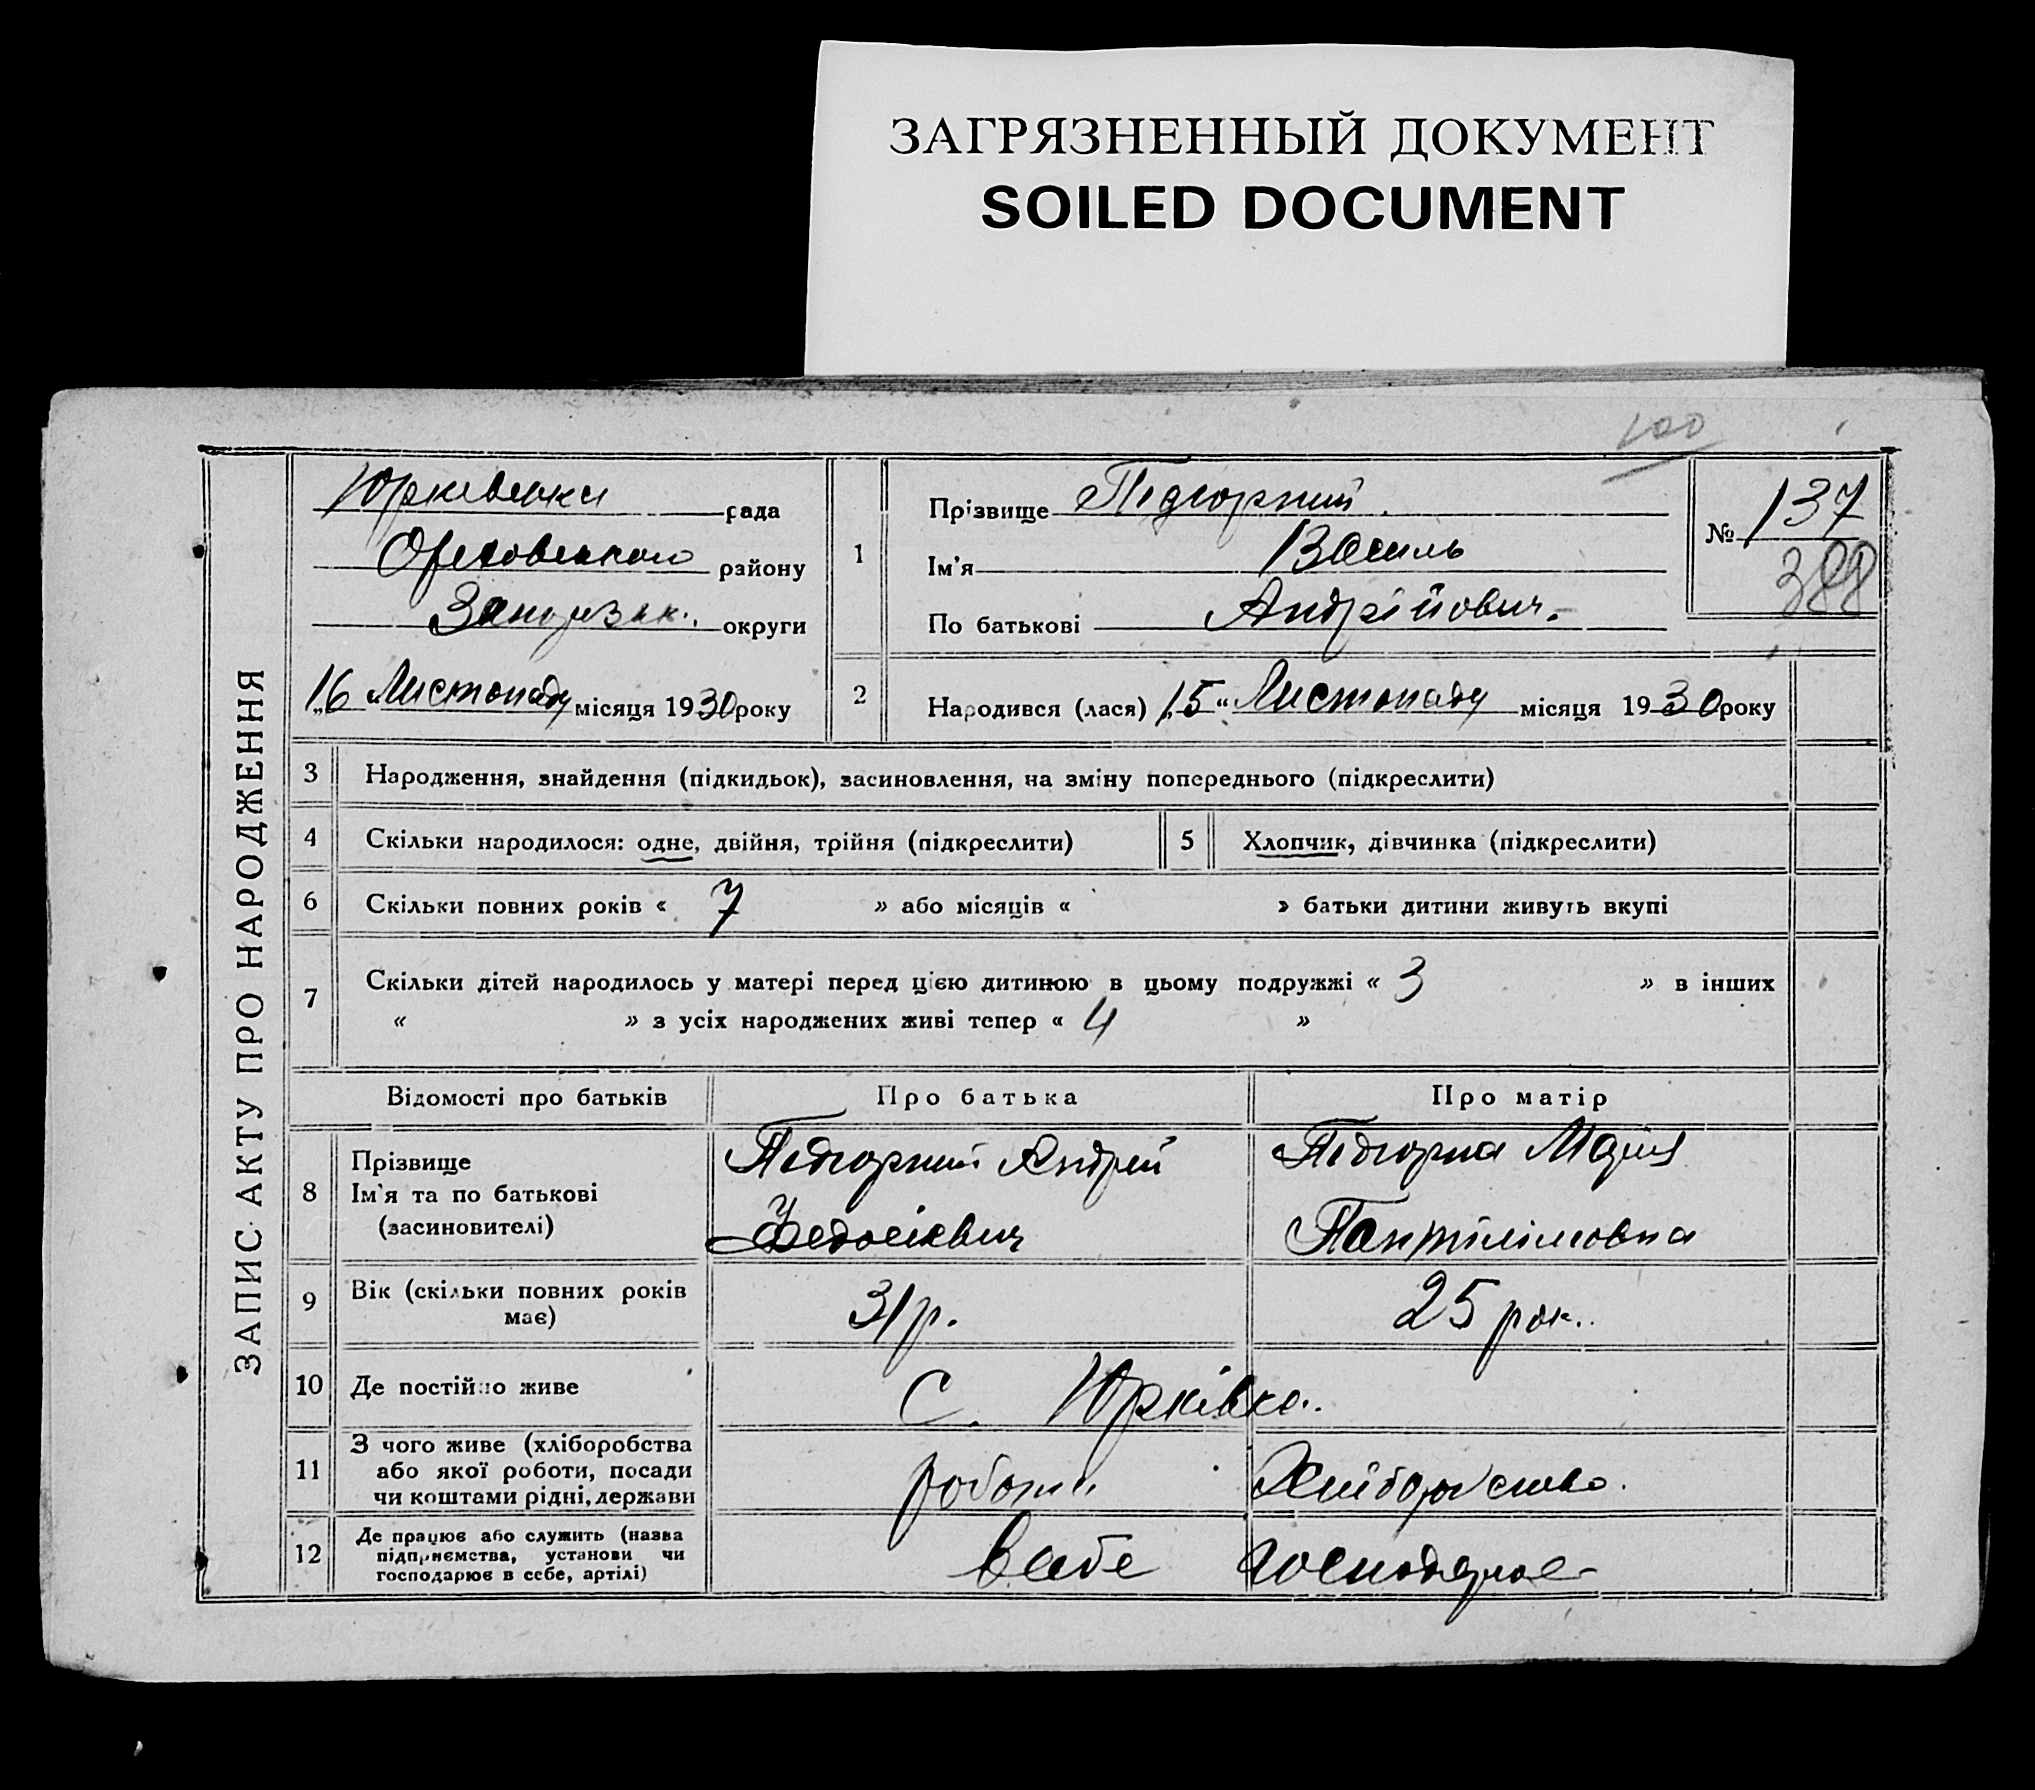 ЗАГРЯЗНЕННЫЙ ДОКУМЕНТ
SOILED DOCUMENT
100
ЗАПИС АКТУ ПРО НАРОДЖЕННЯ
Юрківська рада
Ореховського району
Запорізьк. округи
„16“ Листопаду місяця 1930 року
1
Прізвище Підгорний
Ім'я Василь
По батькові Андрійович.
№ 137
388
2
Народився (лася) „15“ Листопаду місяця 1930 року
3 Народження, знайдення (підкидьок), засиновлення, на зміну попереднього (підкреслити)
4 Скільки народилося: одне, двійня, трійня (підкреслити)
5 Хлопчик, дівчинка (підкреслити)
6 Скільки повних років « 7 » або місяців « » батьки дитини живуть вкупі
7 Скільки дітей народилось у матері перед цією дитиною в цьому подружжі « 3 » в інших
« » з усіх народжених живі тепер « 4 »
Відомості про батьків Про батька Про матір
8 Прізвище
Ім'я та по батькові
(засиновителі)
Підгорний Андрій
Федосієвич
Підгорна Марія
Пантілімовна
9 Вік (скільки повних років
має)
31 р. 25 рок.
10 Де постійно живе С. Юрківка.
11 З чого живе (хліборобства
або якої роботи, посади
чи коштами рідні, держави
роботи Хліборобство.
12 Де працює або служить (назва
підприємства, установи чи
господарює в себе, артілі)
в себе господарює